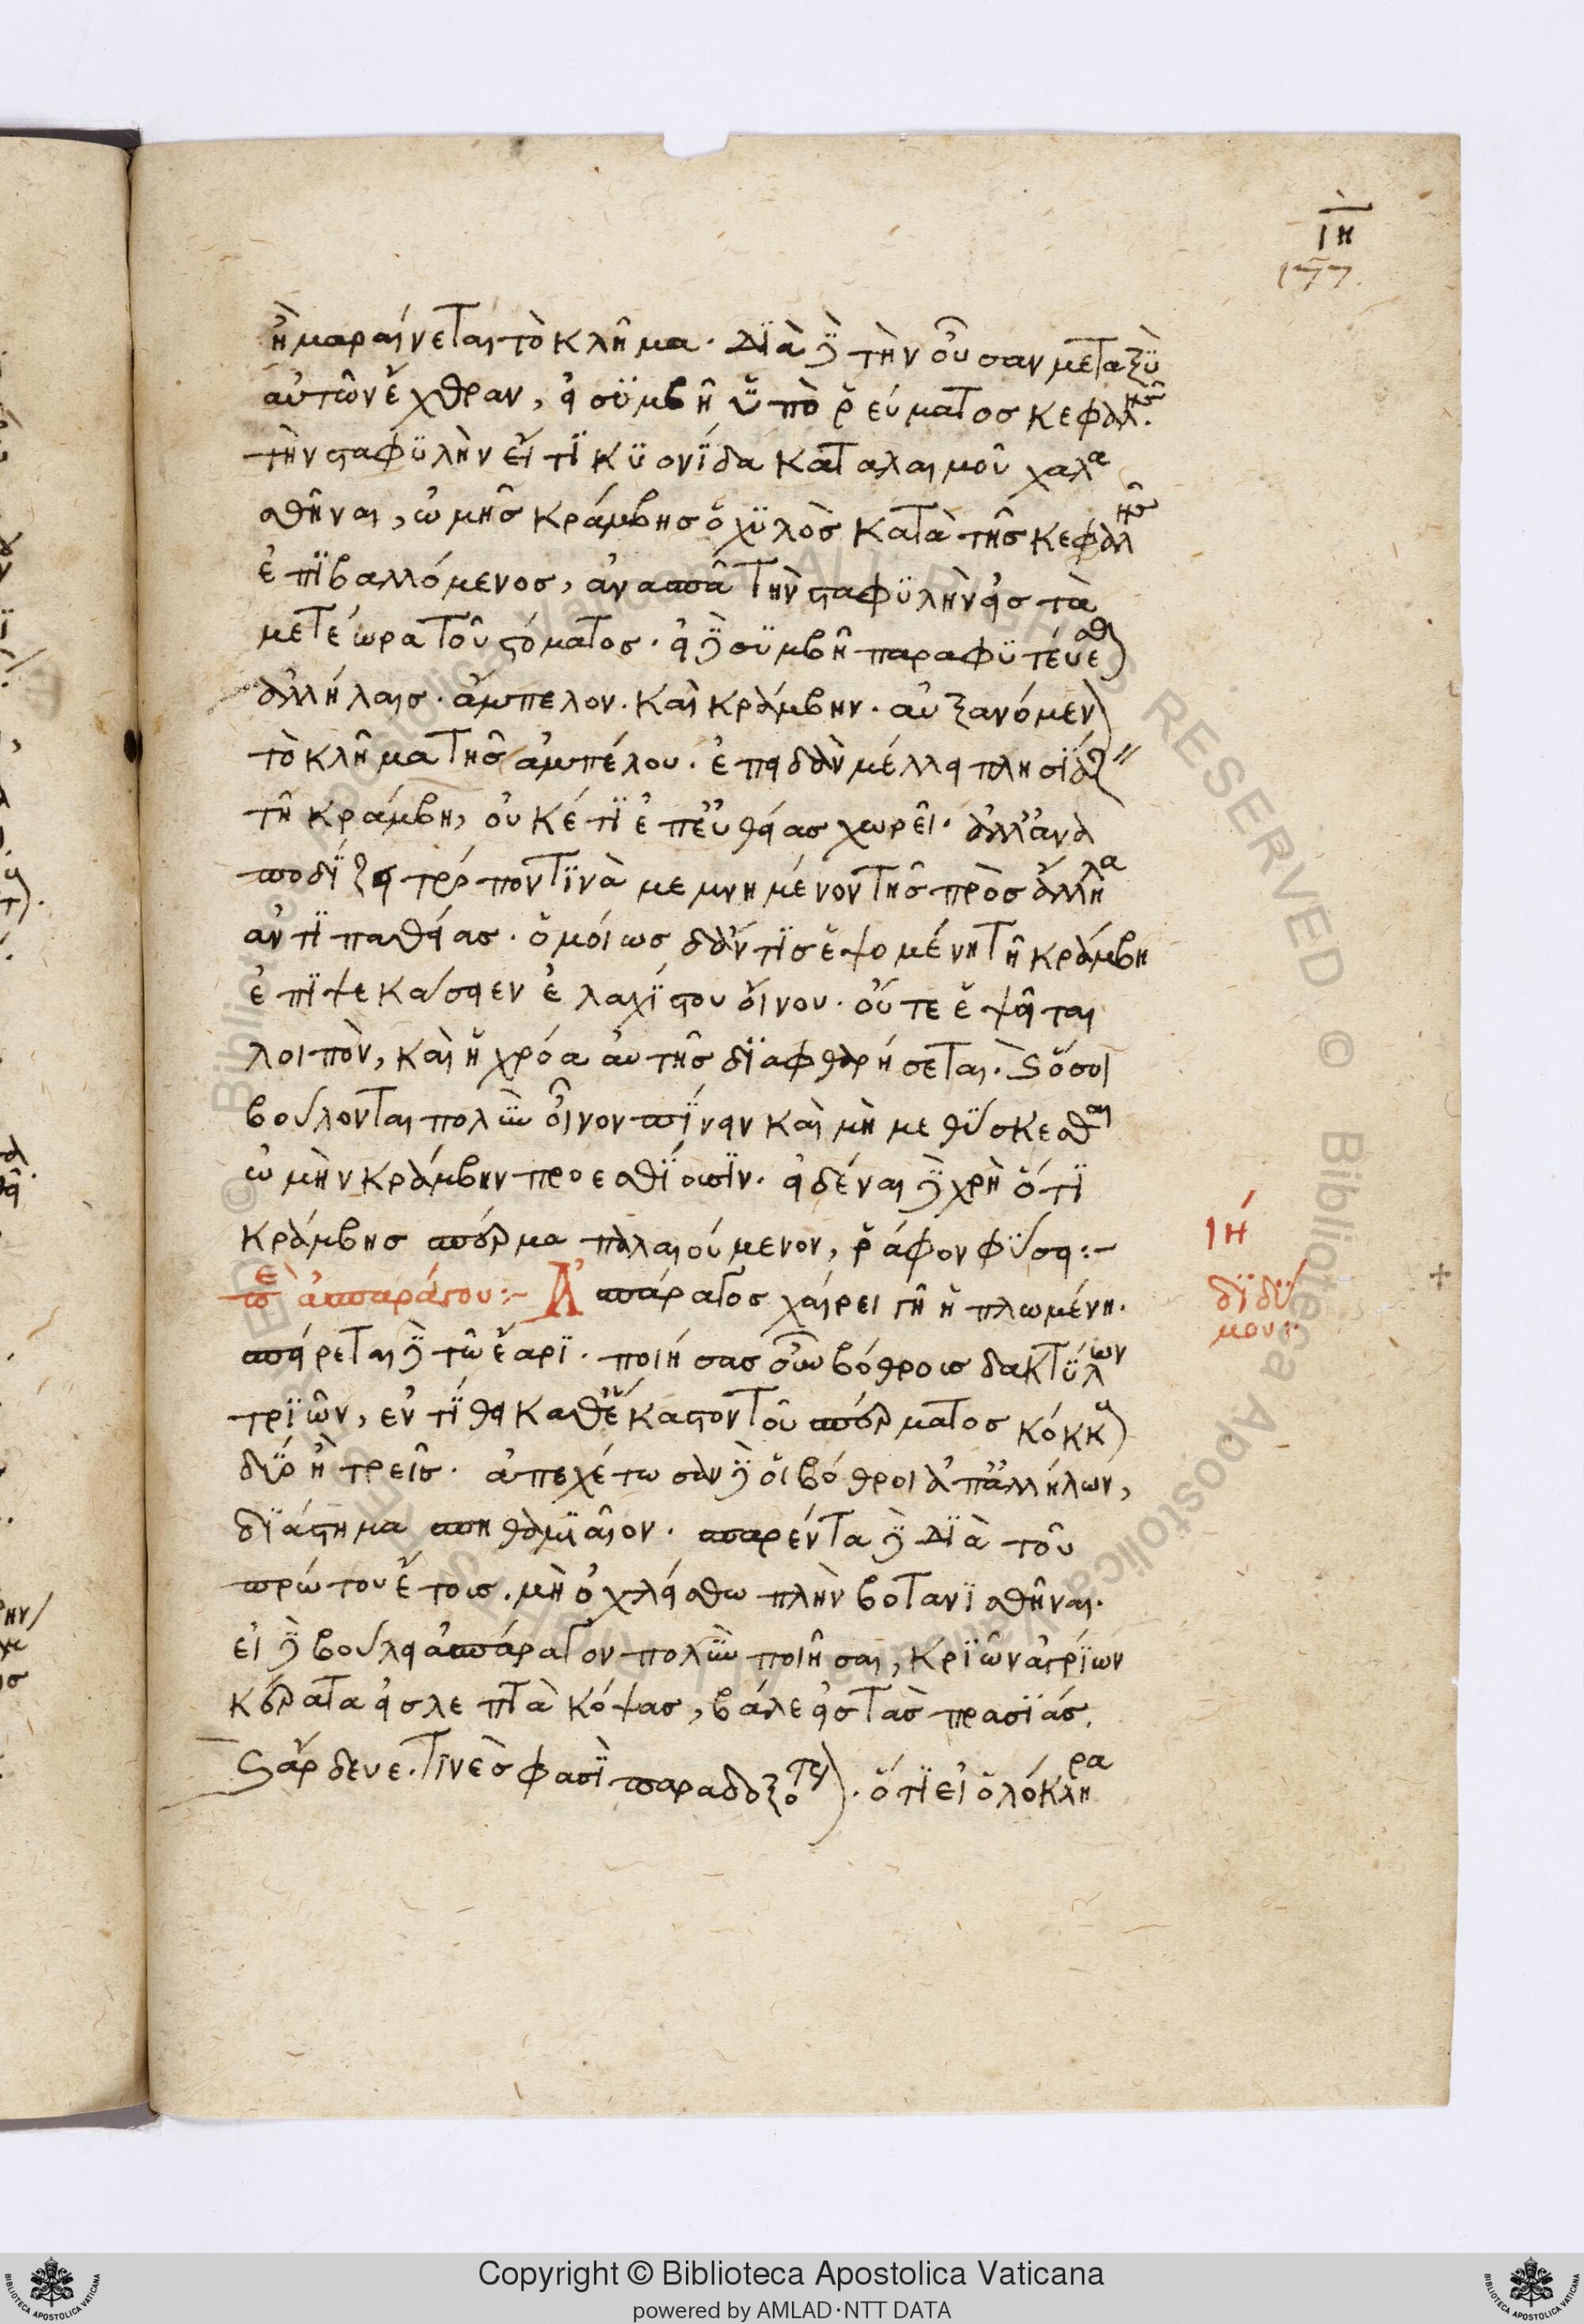 ιη
177.
ἢ μαραίνεται τὸ κλῆμα. διὰ δὲ τὴν οὖσαν μεταξὺ
αὐτῶν ἔχθραν, εἰ συμβῆ ὑπὸ ῥεύματος κεφαλῆς
τὴν σταφυλὴν εἴτι κυονίδα κατα λαιμοῦ χαλα
σθῆναι, ὠμῆς κράμβης ὁ χυλὸς κατὰ τῆς κεφαλῆς
ἐπιβαλλόμενος, ἀνασπᾶ τὴν σταφυλὴν εἰς τὰ
μετέωρα τοῦ στόματος. εἰ δὲ συμβῆ παραφυτεύεσθαι
ἀλλήλαις. ἄμπελον. καὶ κράμβην. αὐξανόμενον
τὸ κλῆμα τῆς ἀμπέλου. ἐπειδὰν μέλλει πλησιάζειν
τῆ κράμβη, οὐκέτι ἐπευθείας χωρεῖ. ἀλλ' ἀνα
ποδίζει τρόπον τινὰ μεμνημένον τῆς πρὸς ἄλληλα
ἀντιπαθείας. ὁμοίως δ' ἄν τις ἑψομένη τῆ κράμβη
ἐπιψεκάσειεν ἐλαχίστου οἴνου. οὔτε ἑψεῖται
λοιπὸν, καὶ ἡ χρόα αὐτῆς διαφθαρήσεται. καὶ ὅσοι
βούλονται πολὺν οἶνον πίνειν καὶ μὴ μεθύσκεσθαι
ὠμὴν κράμβην προεσθίουσιν. εἰδέναι δὲ χρὴ ὅτι
κράμβης σπέρμα παλαιούμενον, ῥάφον φύσει:–
ιη
πε ἀσπαράγου:– Ἀσπάραγος χαίρει γῆ ἡπλωμένη.
διδύ
μου:
σπείρεται δὲ τῶ ἔαρι. ποιήσας οὖν βόθροις δακτύλων
τριῶν, ἐντίθει καθ' ἕκαστον τοῦ σπέρματος κόκκους
δύο ἢ τρεῖς. ἀπεχέτωσαν δὲ οἱ βόθροι ἀπ' ἀλλήλων,
διάστημα σπηθαμιαῖον. σπαρέντα δὲ διὰ τοῦ
πρώτου ἔτους. μὴ ὀχλείσθω πλὴν βοτανισθῆναι.
εἰ δὲ βούλει ἀσπάραγον πολὺν ποιῆσαι, κριῶν ἀγρίων
κέρατα εἰς λεπτὰ κόψας, βάλε εἰς τὰς πρασιάς.
καὶ ἄρδευε. τινὲς φασὶ παραδοξότερον. ὅτι εἰ ὁλόκληρα
Copyright © Biblioteca Apostolica Vaticana
powered by AMLAD·NTT DATA